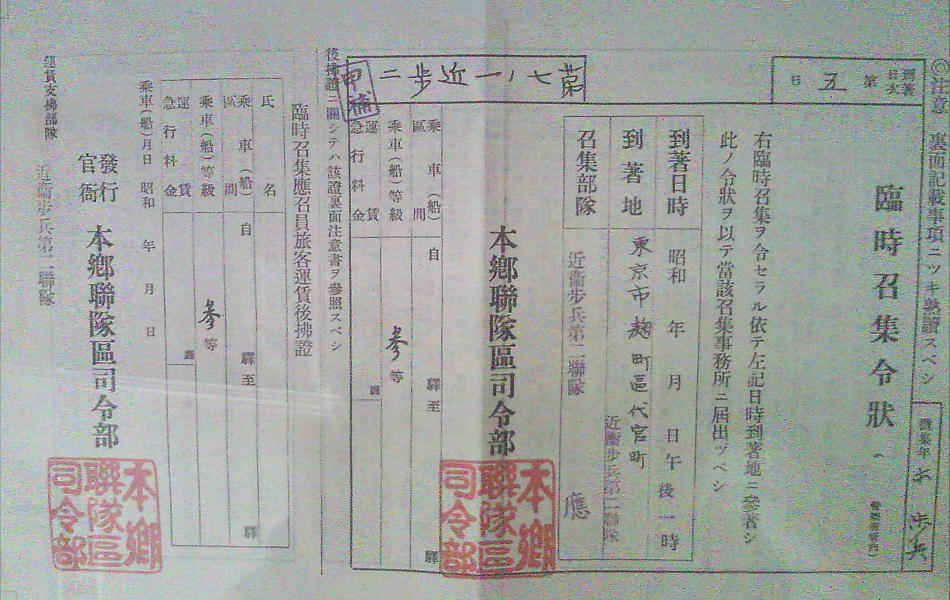 ◎注意 裏面記載事項ニツキ熟讀スベシ
歩兵
臨時召集令狀
到著日次 第五日
右臨時召集ヲ令セラル依テ左記日時到著地ニ參著シ
此ノ令狀ヲ以テ當該召集事務所ニ届出ヅベシ
到著日時 昭和 年 月 日午後一時
到著地 東京市麹町區代官町
近衛步兵第二聯隊
召集部隊 近衛步兵第二聯隊 應
第七ノ一近步二
甲補
本鄉聯隊區司令部
本鄉聯隊區司令部
乘車(船)區間 自 驛至 驛
乘車(船)等級 參等
運賃
急行料金
後拂證ニ關シテハ該證裏面注意書ヲ參照スベシ
臨時召集應召員旅客運賃後拂證
氏名
乘車(船)區間 自 驛至 驛
乘車(船)等級 參等
運賃
急行料金
乘車(船)月日 昭和 年 月 日
發行官衙 本鄉聯隊區司令部
本鄉聯隊區司令部
運賃支拂部隊 近衛步兵第二聯隊